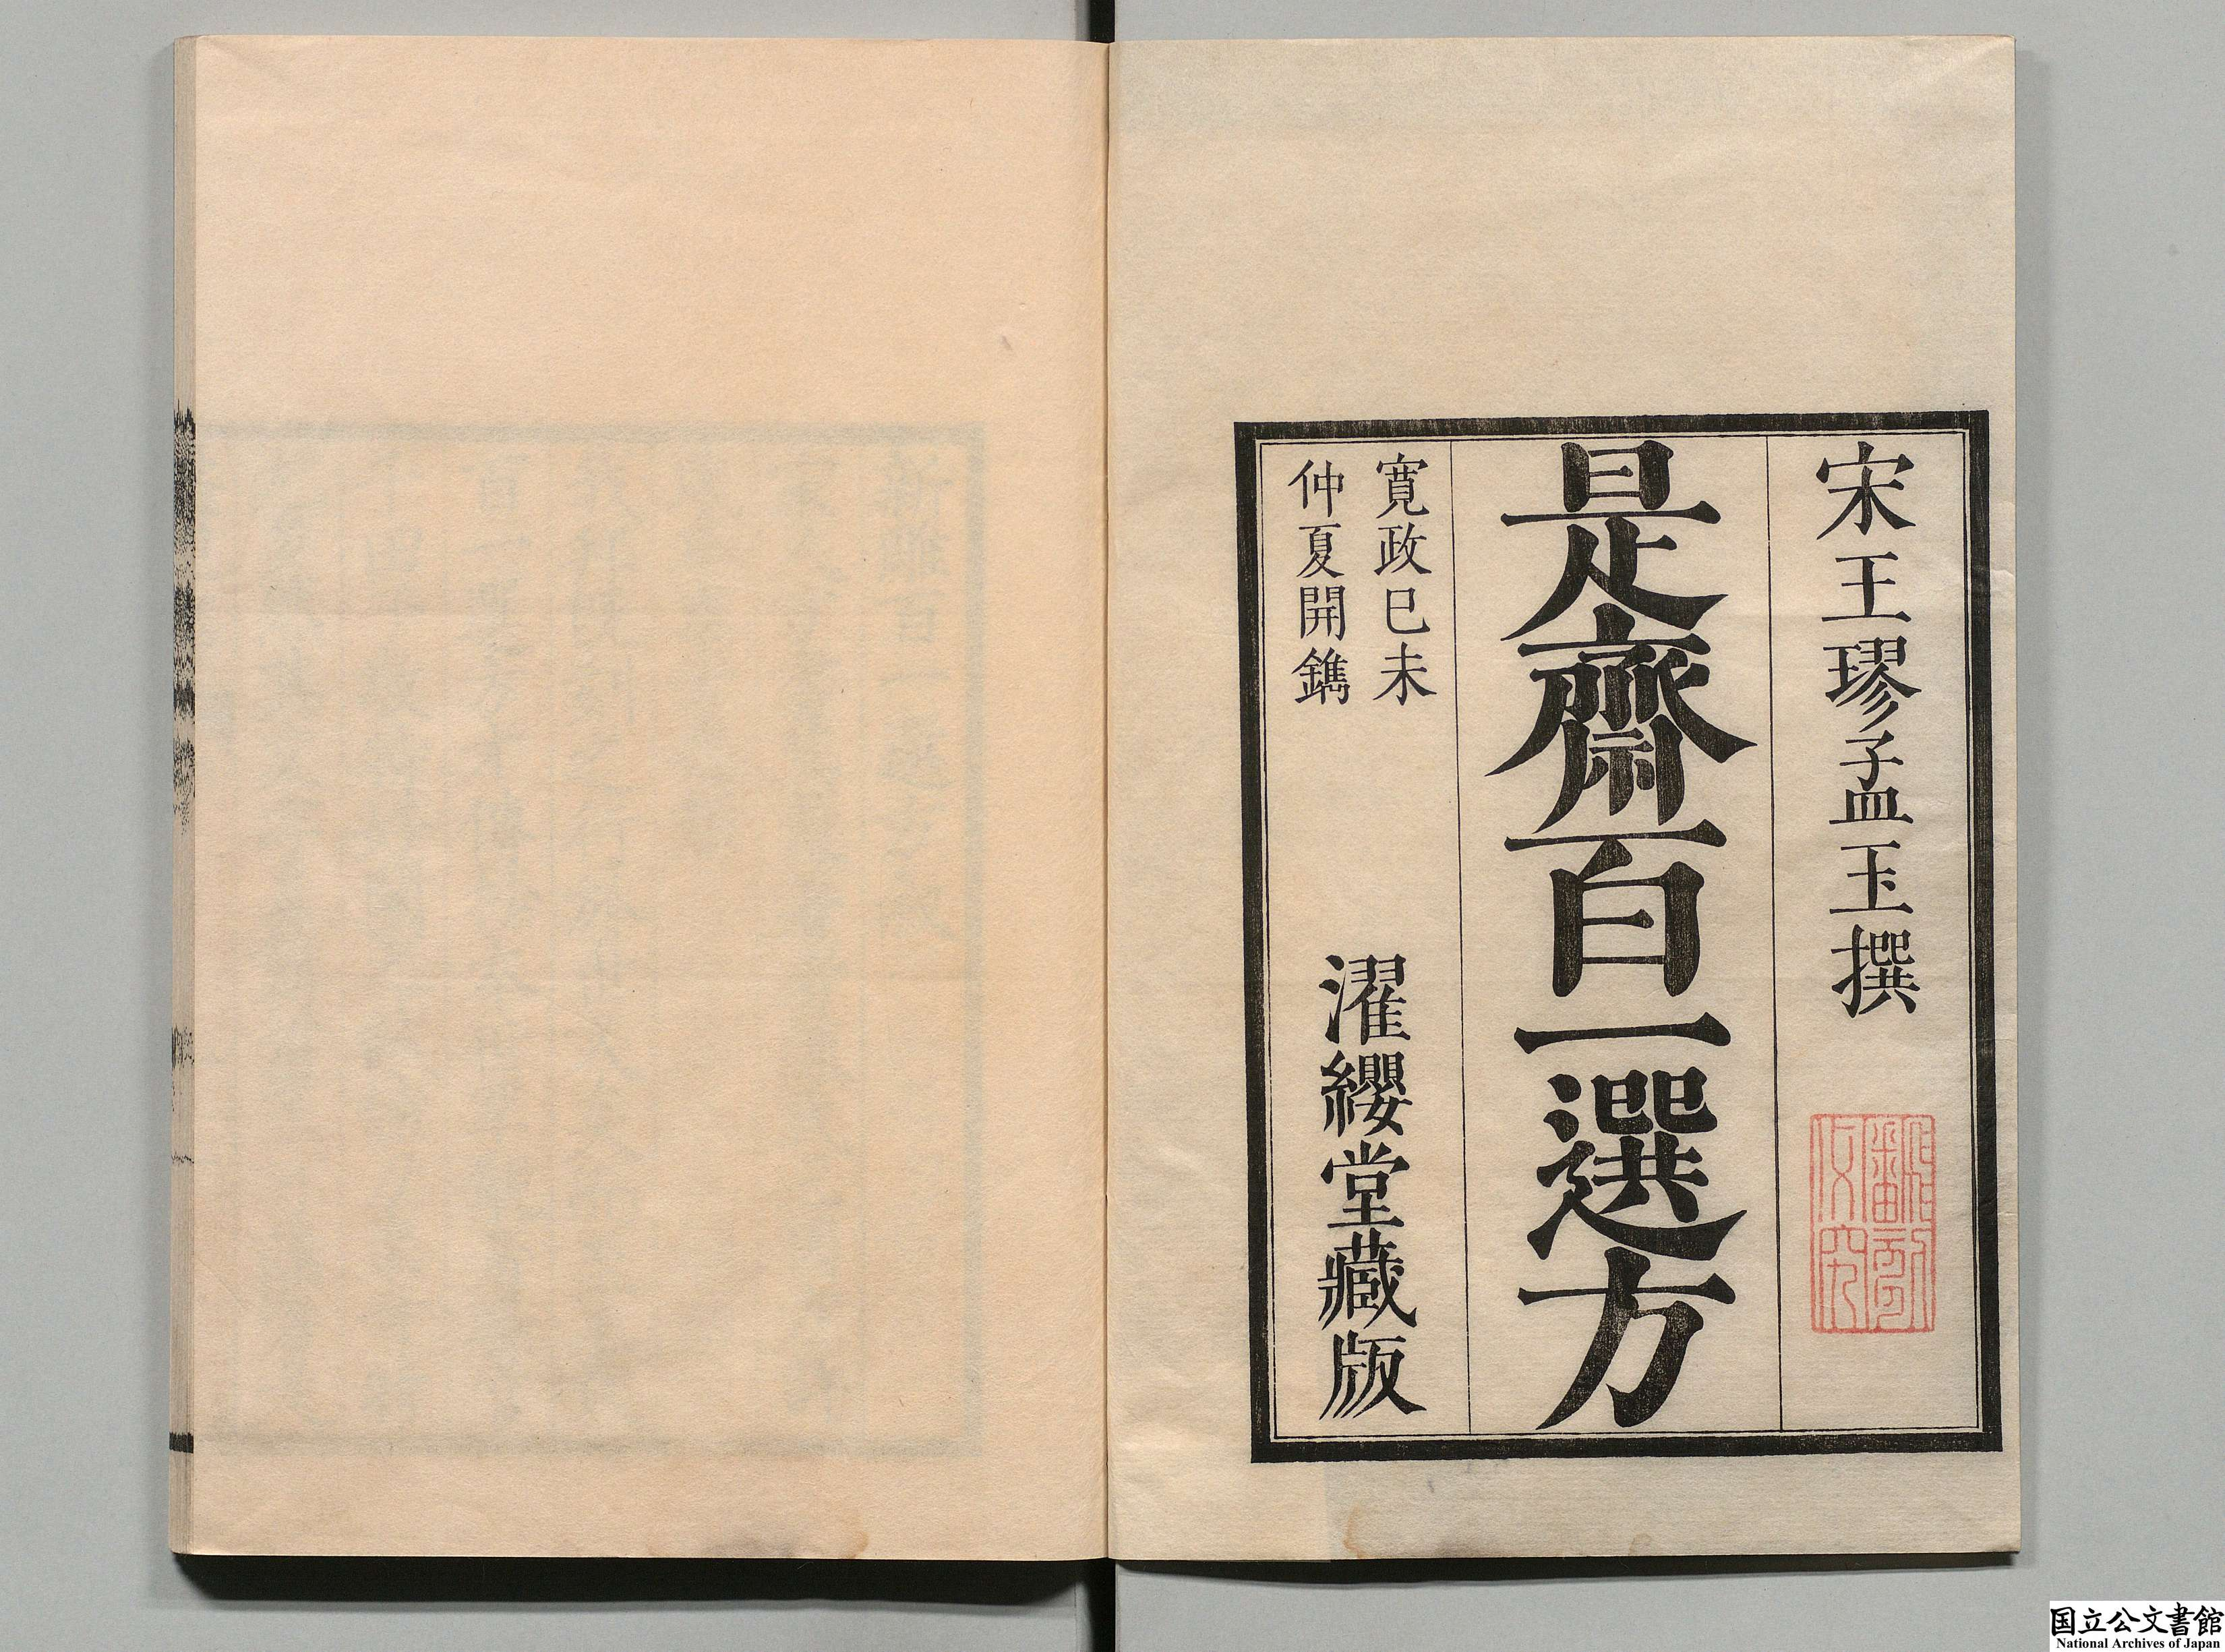 宋王璆孟玉撰
是齋百一選方
寛政己未
仲夏開鐫
濯纓堂藏版
国立公文書館
National Archives of Japan